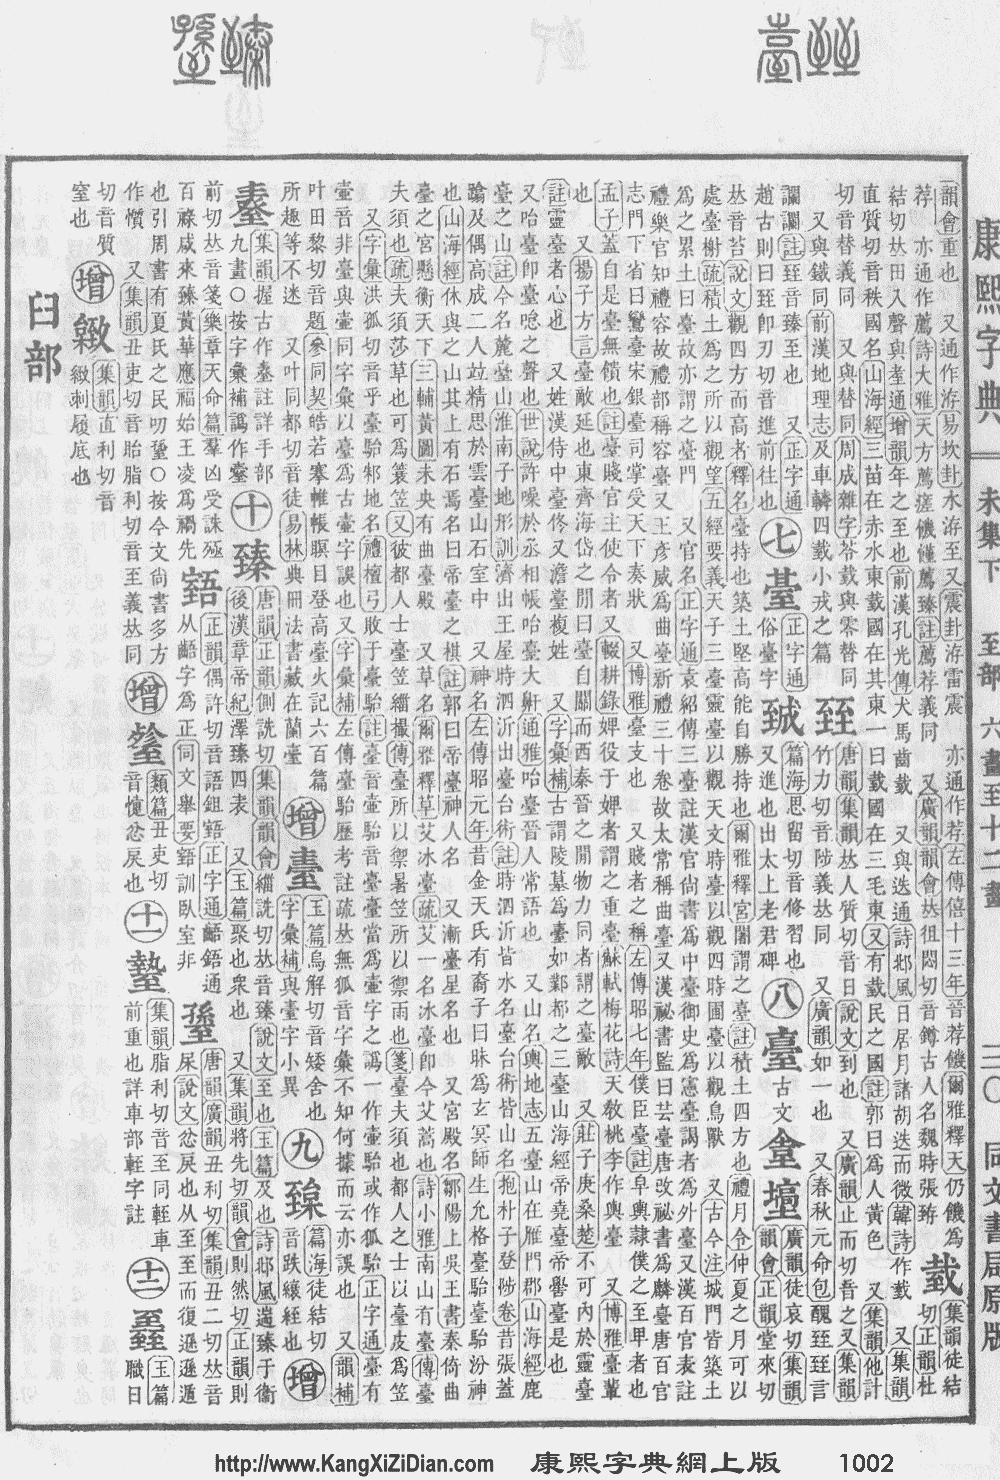 康熙字典 未集下 至部 六畫至十二畫 三〇 同文書局原版
韻會重也 又通作洊易坎卦水洊至又震卦洊雷震 亦通作荐左傳僖十三年晉荐饑爾雅釋天仍饑為
荐 亦通作薦詩大雅天方薦瘥饑饉薦臻註薦荐義同 又廣韻韻會𠀤徂悶切音鐏古人名魏時張臶
臷 集韻徒結切正韻杜
結切𠀤田入聲與耋通增韻年之至也前漢孔光傳犬馬齒臷 又與迭通詩邶風日居月諸胡迭而微韓詩作臷 又集韻
直質切音秩國名山海經三苗在赤水東臷國在其東一曰臷國在三毛東又有臷民之國註郭曰為人黃色 又集韻他計
切音替義同 又與替同周成雜字荅臷與零替同
又與鐵同前漢地理志及車轔四臷小戎之篇
臸 唐韻集韻𠀤人質切音日說文到也 又廣韻止而切音之又集韻
竹力切音陟義𠀤同 又廣韻如一也 又春秋元命包醜臸臸言
讕讕註臸音臻至也 又正字通
趙古則曰臸卽刃切音進前往也
七
䑓 正字通俗臺字
𦤶 篇海思留切音修習也
又進也出太上老君碑
八
臺 古文
廣韻徒哀切集韻
韻會正韻堂來切
𠀤音苔說文觀四方而高者釋名臺持也築土堅高能自勝持也爾雅釋宮闍謂之臺註積土四方也禮月令仲夏之月可以
處臺榭疏積土為之所以觀望五經要義天子三臺靈臺以觀天文時臺以觀四時囿臺以觀鳥獸 又古今注城門皆築土
為之累土曰臺故亦謂之臺門 又官名正字通袁紹傳三臺註漢官尚書為中臺御史為憲臺謁者為外臺又漢百官表註
禮樂官知禮容故禮部稱容臺又王彥威為曲臺新禮三十卷故太常稱曲臺又漢祕書監曰芸臺唐改祕書為麟臺唐百官
志門下省曰鸞臺宋銀臺司掌受天下奏狀 又博雅臺支也 又賤者之稱左傳昭七年僕臣臺註阜輿隸僕之至卑者
孟子蓋自是臺無餽也註臺賤官主使令者又輟耕錄婢役于婢者謂之重臺蘇軾梅花詩天敎桃李作輿臺 又博雅臺輩也
也 又揚子方言臺敵延也東齊海岱之閒曰臺自關而西秦晉之閒物力同者謂之臺敵 又莊子庚桑楚不可內於靈臺
註靈臺者心也 又姓漢侍中臺佟又澹臺複姓 又字彙補古謂陵墓為臺如鄴都之三臺山海經帝堯臺帝嚳臺是也
又咍臺卽臺唸之聲也世說許璪於丞相帳咍臺大鼾通雅咍臺晉人常語也 又山名輿地志五臺山在雁門郡山海經鹿
臺之山註今名麓臺山淮南子地形訓濟出王屋時泗沂出臺台術註時泗沂皆水名臺台術皆山名抱朴子登陟卷昔張蓋
蹹及偶高成二人竝精思於雲臺山石室中 又神名左傳昭元年昔金天氏有裔子曰昧為玄冥師生允格臺駘臺駘汾神
也山海經休與之山其上有石焉名曰帝臺之棋註郭曰帝臺神人名 又漸臺星名也 又宮殿名鄒陽上吳王書秦倚曲
臺之宮懸衡天下三輔黃圖未央有曲臺殿 又草名爾雅釋草艾冰臺疏艾一名冰臺卽今艾蒿也詩小雅南山有臺傳臺
夫須也疏夫須莎草也可為蓑笠又彼都人士臺笠緇撮傳臺所以禦暑笠所以禦雨也箋臺夫須也都人之士以臺皮為笠
又字彙洪孤切音乎臺駘邾地名禮檀弓敗于臺駘註臺當為壷字之誤一作壷駘或作狐駘正字通臺有
壷音非臺與壷同字彙以臺為古壷字誤也又字彙補左傳臺駘歷考註疏𠀤無狐音字彙不知何據而云亦誤也 又韻補
叶田黎切音題參同契皓若褰帷帳瞑目登高臺火記六百篇
所趣等不迷 又叶同都切音徒易林典冊法書藏在蘭臺
增
玉篇烏解切音矮舍也
字彙補與臺字小異
九
篇海徒結切
音跌縗絰也
增
集韻握古作臺註詳手部
九畫〇按字彙補譌作臺
十
臻 唐韻正韻側詵切集韻韻會緇詵切𠀤音臻說文至也玉篇及也詩邶風遄臻于衞
後漢章帝紀澤臻四表 又玉篇聚也衆也 又集韻將先切韻會則然切正韻則
前切𠀤音箋樂章天命篇羣凶受誅殛
百祿咸來臻黃華應福始王凌為禍先
正韻偶許切音語鉏𦥂正字通齬𦥂通
从齬字為正同文舉要𦥂訓臥室非
唐韻廣韻丑利切集韻丑二切𠀤音
屎說文忿戾也从至至而復遜遜遁
也引周書有夏氏之民叨𦥎〇按今文尚書多方
作懫 又集韻丑吏切音胎脂利切音至義𠀤同
增
類篇丑吏切
音懥忿戾也
十一
集韻脂利切音至同輊車
前重也詳車部輊字註
十二
玉篇
職日
切音質
窒也
增
緻 集韻直利切音
緻刺履底也
臼部
http://www.KangXiZiDian.com 康熙字典網上版 1002